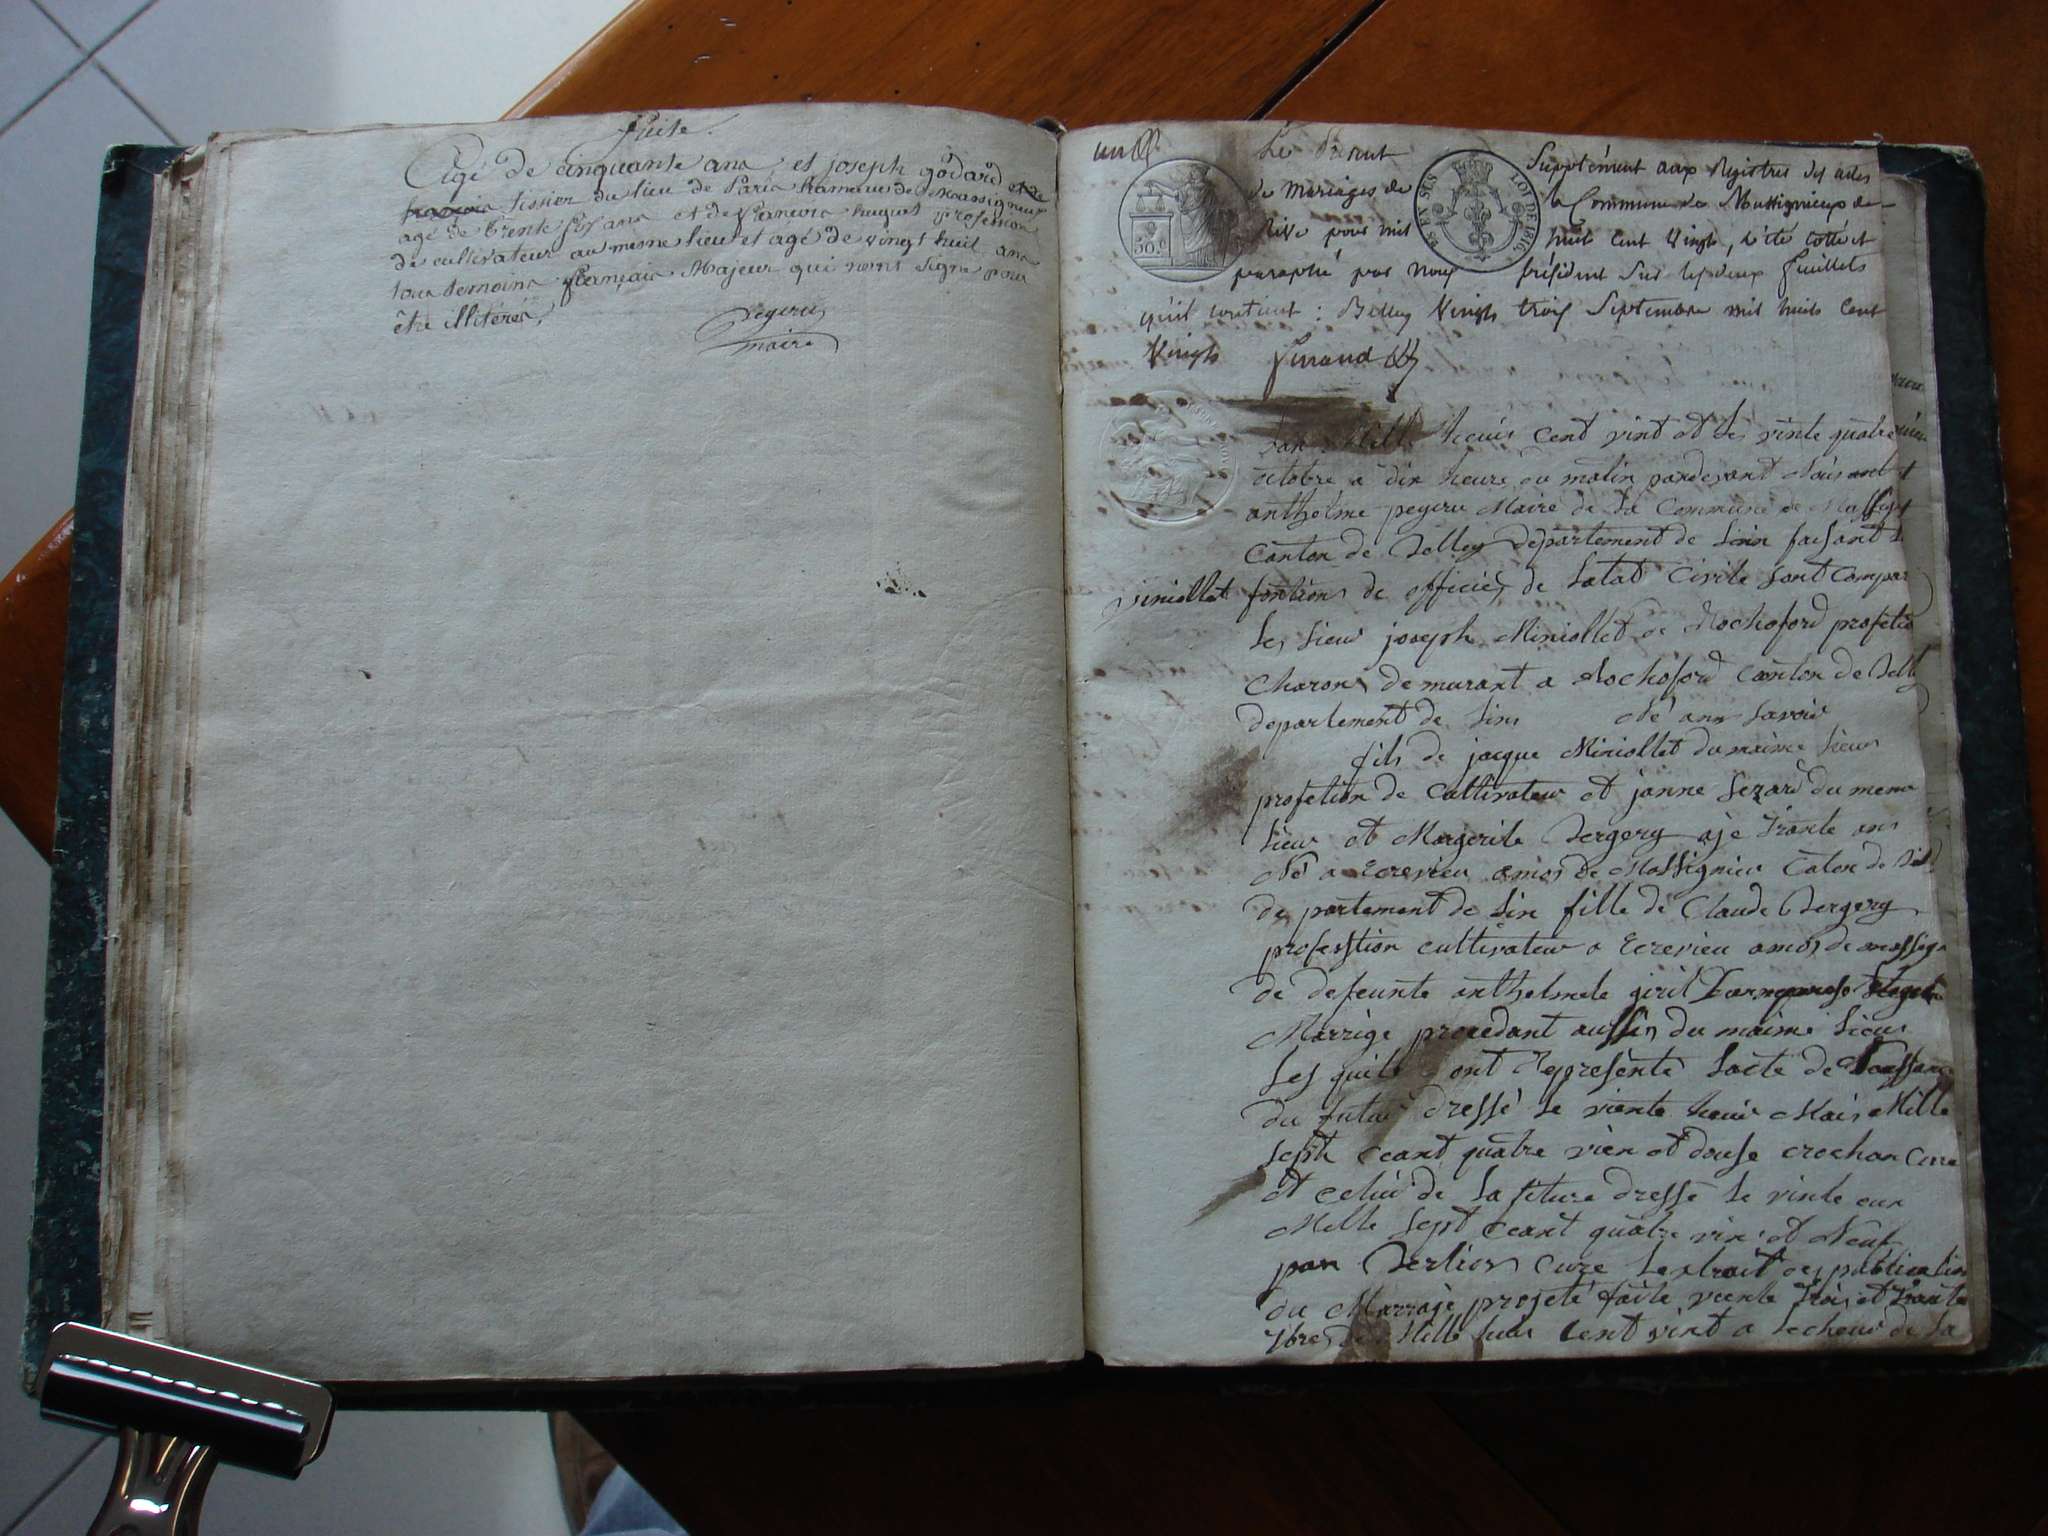 Suite.
Agé de cinquante ans et joseph godard et de
françois tissier du lieu de Paria hameau de Massigneux
agé de trente six ans et de françois huguet profession
de cultivateur au meme lieu et agé de vingt huit ans
tous temoins français Majeur qui n'ont signé pour
être illitérés,
pegeru
maire
un
Le Présent Supplément aux Registres des actes
de Mariages de la Commune de Massignieux de
Rive pour mil huit cent Vingt, à été cotté et
paraphé par nous président sur les deux feuillets
qu'il contient : Belley Vingt trois Septembre mil huit cent
Vingt
50.c
EN SUS
LOI DE 1816
Lan Mille heuis Cent vint et les vinte quatre
octobre a dix heure du matin pardevant Nous
anthelme pegeru Maire de La Commune de Massign
Canton de Belley departement de Lain faisant
Miniollet
fontions de officiez de Latat Civile sont Compar
Le Sieur joseph Miniollet de Rochoford profetio
Charons demurant a Rochoford Canton de Bell
departement de Lins Né ans Savoir
fils de jacque Miniollet du maime Lieus
profetion de Cultivateur et janne Lezard du meme
Lieu et Margerite Bergery aje Trante ans
Né a Ecrevieu amos de Massignieu Caton de Bel
de partement de Lin fille de Claude Bergery
professtion cultivateur a Ecrevieu amos de massig
de defeunte anthelmete girit
Marrige procedant aussis du maime Lieus
Les quils ont Représenté Lacte de Naissance
du futur dressé Le viente heuis Mais Mille
Sept Ceant quatre vien et douse crochon Cure
et Celui de La future dressé Le vinte
Mille Sept Ceant quatre vin et Neuf
par Berlios Cure Lextrait des publication
du Marraje projeté faite viente trois et trante
7bres de Mille huis Cent vint a Lecheur de La